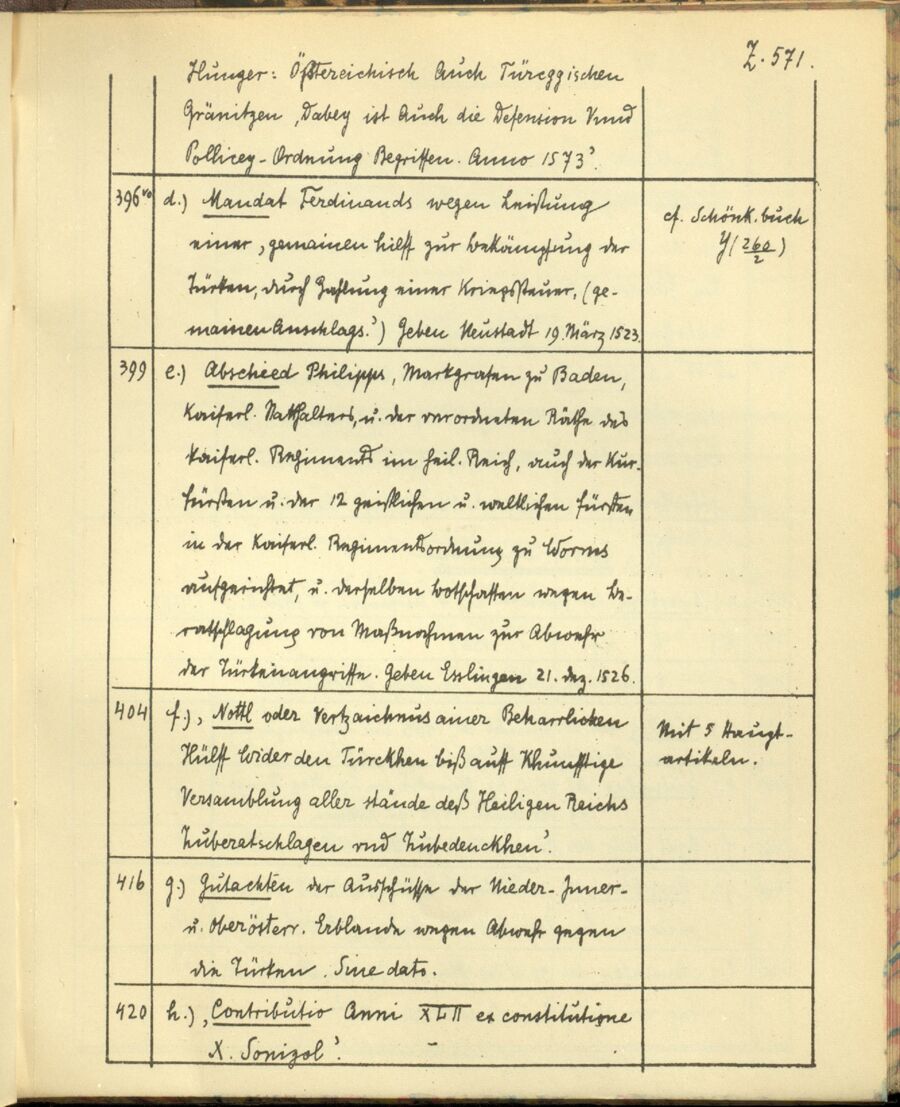 Z. 571.
Hunger: Österreichisch Auch Türeggischen
Gränitzen, Dabey ist Auch die Defension Vnnd
Pollicey-Ordnung Begriffen. Anno 1573'.
396vo d.) Mandat Ferdinands wegen Leistung
einer 'gemainen hilff zur Bekämpfung der
Türken, durch Zahlung einer Kriegssteuer. (ge-
mainen Anschlags.') Geben Neustadt 19. März 1523.
cf. Schönk. buch
Y(260/2)
399 e.) Abscheed Philipps, Markgrafen zu Baden,
Kaiserl. Statthalters, u. der verordneten Räthe des
kaiserl. Regiments im heil. Reich, auch der Kur-
fürsten u. der 12 geistlichen u. weltlichen Fürsten
in der kaiserl. Regimentsordnung zu Worms
aufgerichtet, u. derselben Botschaften wegen Be-
ratschlagung von Maßnahmen zur Abwehr
der Türkenangriffe. Geben Esslingen 21. Dez. 1526.
404 f.) 'Nottl oder Vertzaichnus ainer Beharrlichen
Hülff wider den Türckhen biß auff Khunfftige
Versamblung aller stände deß Heiligen Reichs
Zuberatschlagen vnd Zubedenckhen'.
Mit 5 Haupt-
artikeln.
416 g.) Gutachten der Ausschüsse der Nieder- Inner-
u. Oberösterr. Erblande wegen Abwehr gegen
die Türken. Sine dato.
420 h.) 'Contributio Anni XLII ex constitutione
X.